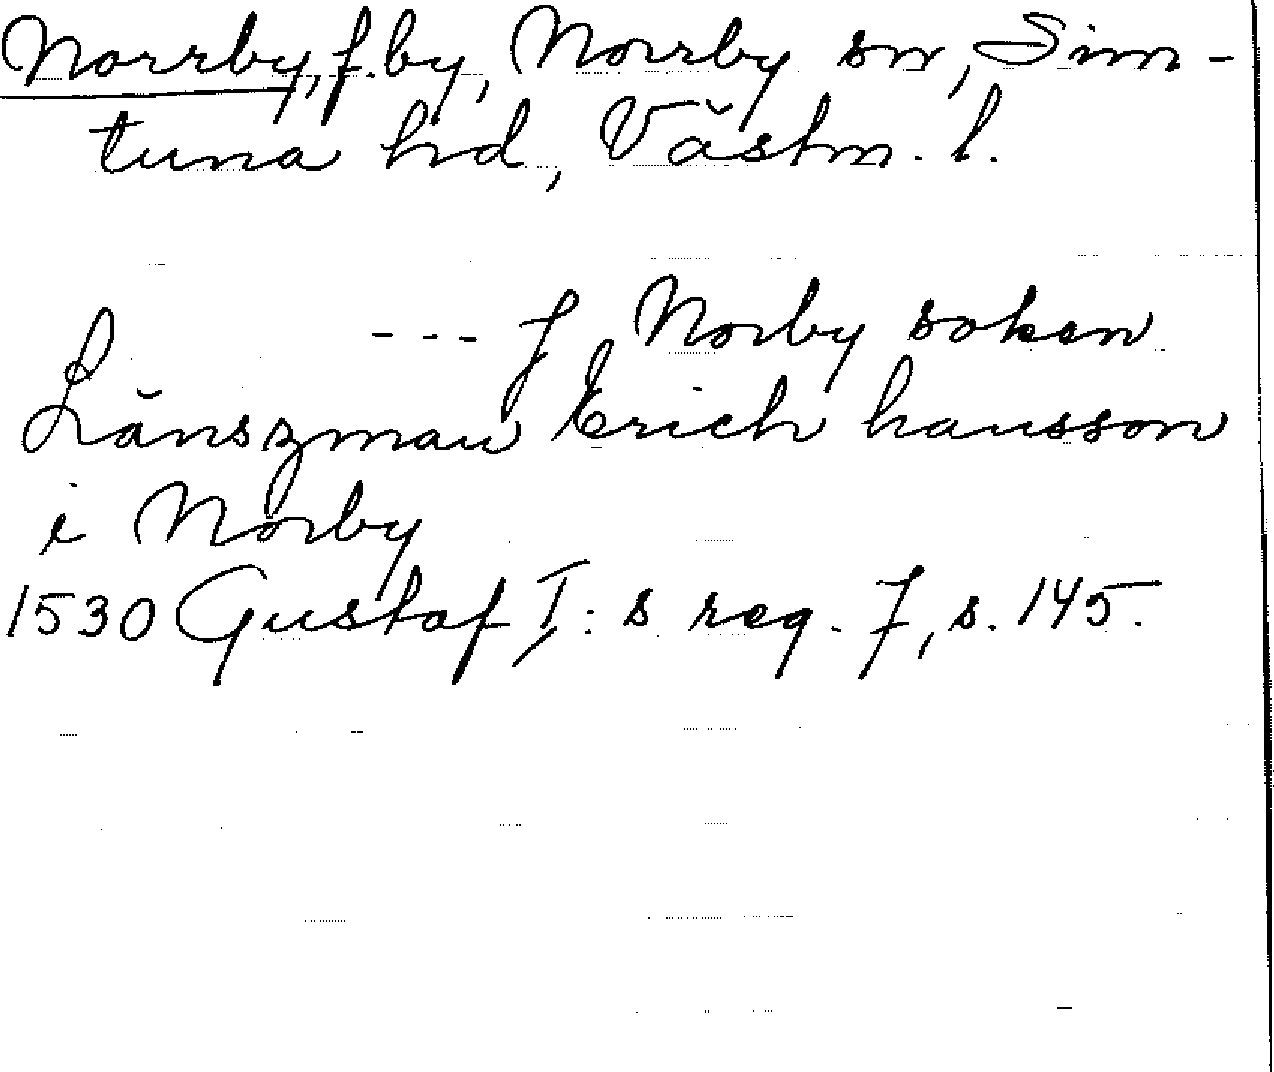 Norrby, f. by, Norrby sn, Sim-
tuna hd, Västm. l.
--- J Norby soken
Länszman Erich hansson
i Norby
1530 Gustaf I:s reg. 7, s. 145.